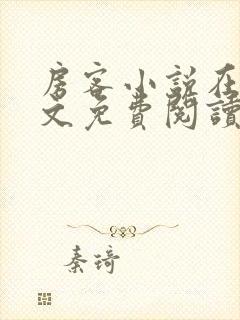 房客小説在
文免費閱讀
秦琦